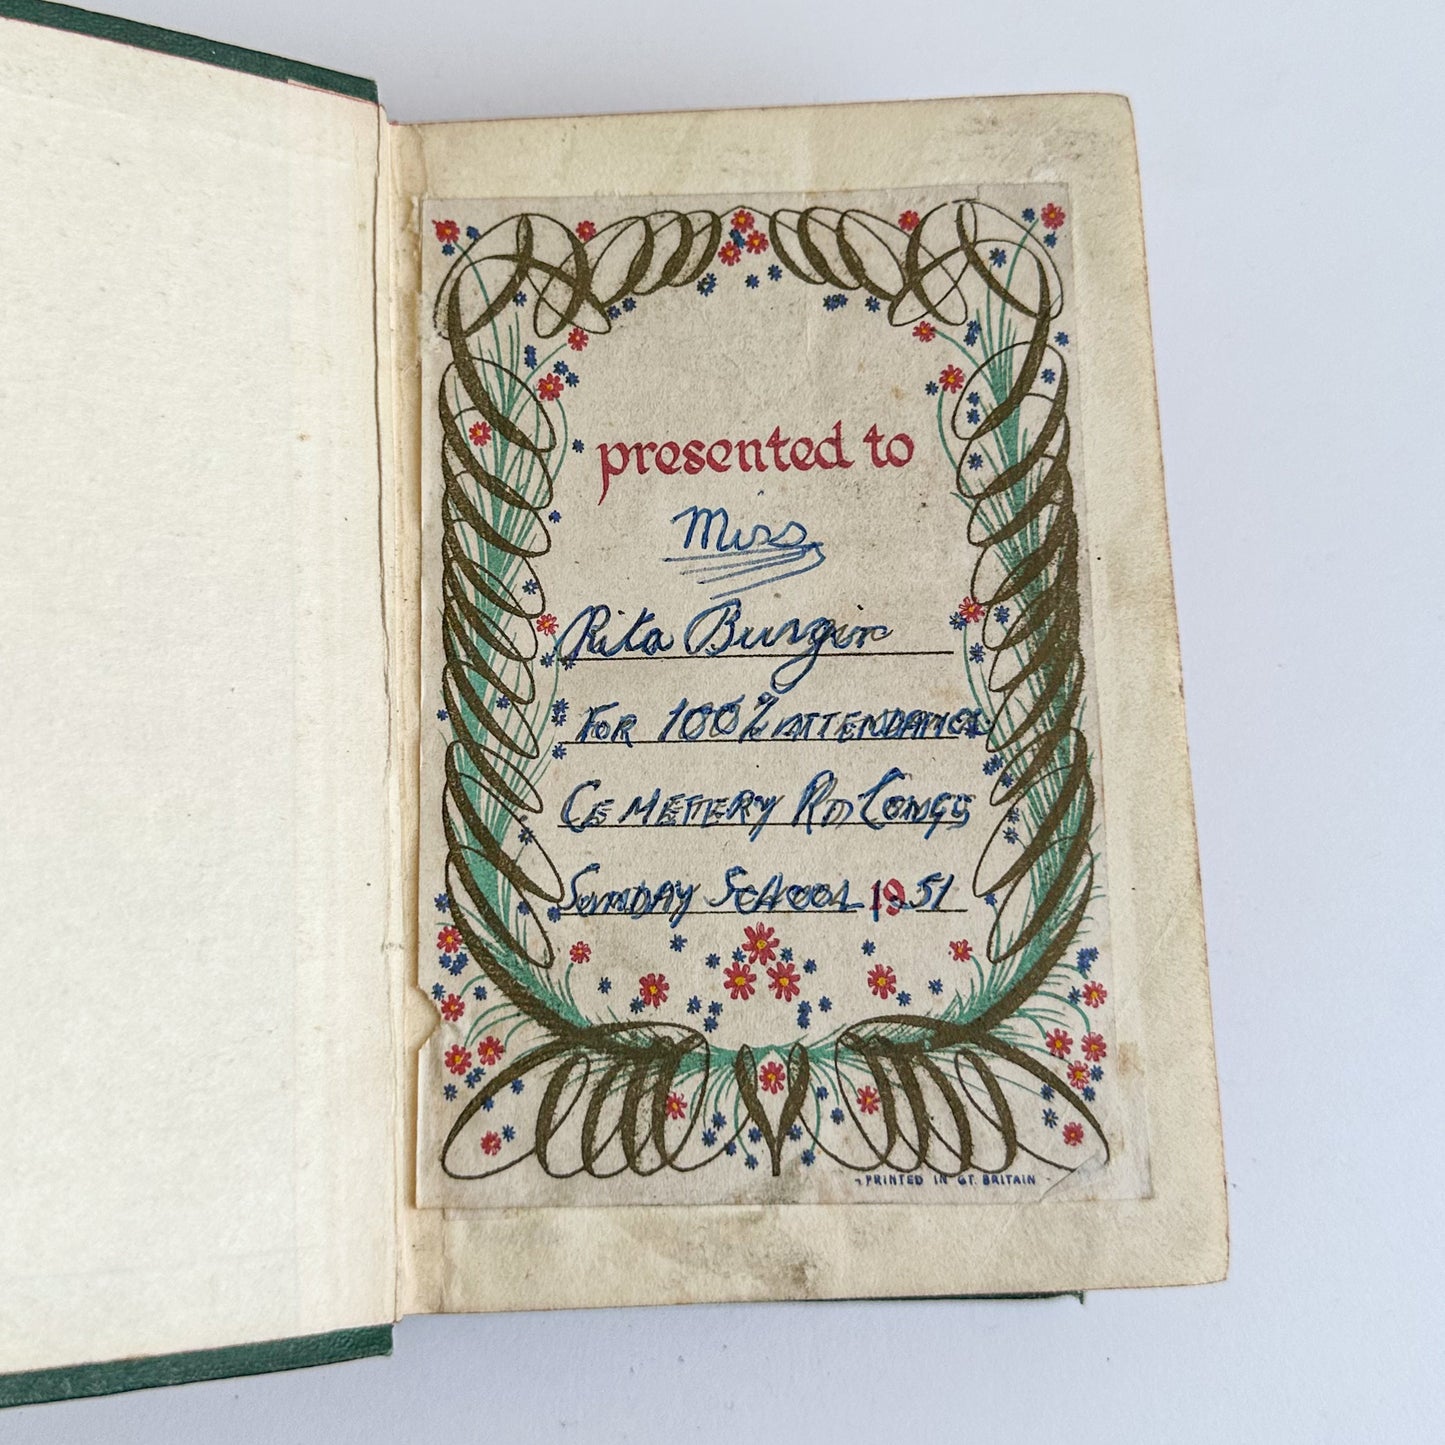 presented to
Miss
Rita Burgin
FOR 100% ATTENDANCE
CEMETERY RD CONGG
SUNDAY SCHOOL 1951
PRINTED IN GT. BRITAIN